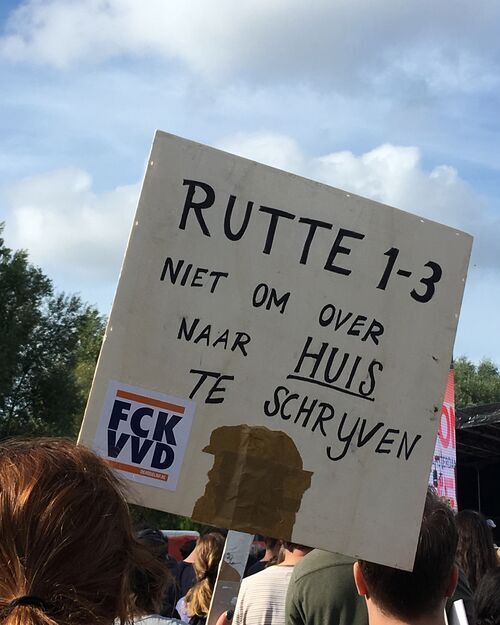 RUTTE 1-3
NIET OM OVER
NAAR HUIS
TE SCHRYVEN
FCK
VVD